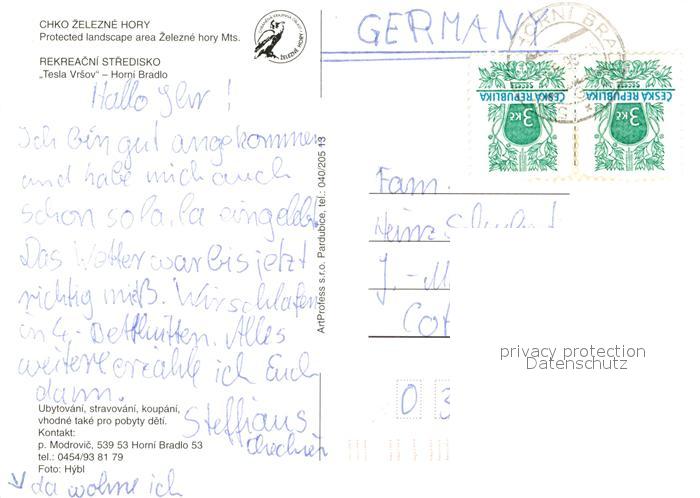 CHKO ŽELEZNÉ HORY
Protected landscape area Železné hory Mts.
REKREAČNÍ STŘEDISKO
„Tesla Vršov“ – Horní Bradlo
Hallo Ihr !
Ich bin gut angekommen
und habe mich auch
schon so la, la eingelebt.
Das Wetter war bis jetzt
richtig mieß. Wir schlafen
in 4,- Betthütten. Alles
weitere erzähle ich Euch
dann.
Steffi aus
Ubytování, stravování, koupání,
vhodné také pro pobyty dětí.
Kontakt:
p. Modrovič, 539 53 Horní Bradlo 53
tel.: 0454/93 81 79
Foto: Hýbl
da wohne ich
ArtProfess s.r.o. Pardubice, tel.: 040/205 13
ŽELEZNÉ HORY
GERMANY
HORNÍ BRA
ČESKÁ REPUBLIKA
SECESE
3 Kč
ČESKÁ REPUBLIKA
SECESE
3 Kč
Fam.
Heinz
J.-M
Cot
0 3
privacy protection
Datenschutz